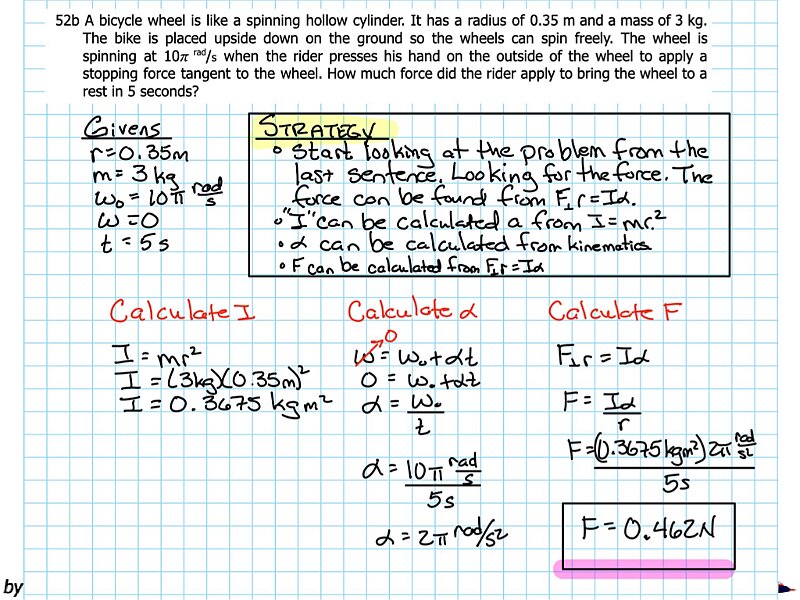 52b A bicycle wheel is like a spinning hollow cylinder. It has a radius of 0.35 m and a mass of 3 kg.
The bike is placed upside down on the ground so the wheels can spin freely. The wheel is
spinning at 10π rad/s when the rider presses his hand on the outside of the wheel to apply a
stopping force tangent to the wheel. How much force did the rider apply to bring the wheel to a
rest in 5 seconds?
Givens
r=0.35m
m=3kg
ω₀=10π rad/s
ω=0
t=5s
STRATEGY
• Start looking at the problem from the
last sentence. Looking for the force. The
force can be found from F⊥r=Iα.
• "I" can be calculated a from I=mr².
• α can be calculated from kinematics
• F can be calculated from F⊥r=Iα
Calculate I
I=mr²
I=(3kg)(0.35m)²
I=0.3675 kgm²
Calculate α
0
ω=ω₀+αt
0=ω₀+αt
α=ω₀/t
α=10π rad/s/5s
α=2π rad/s²
Calculate F
F⊥r=Iα
F=Iα/r
F=(0.3675kgm²)2π rad/s²/5s
F=0.462N
by